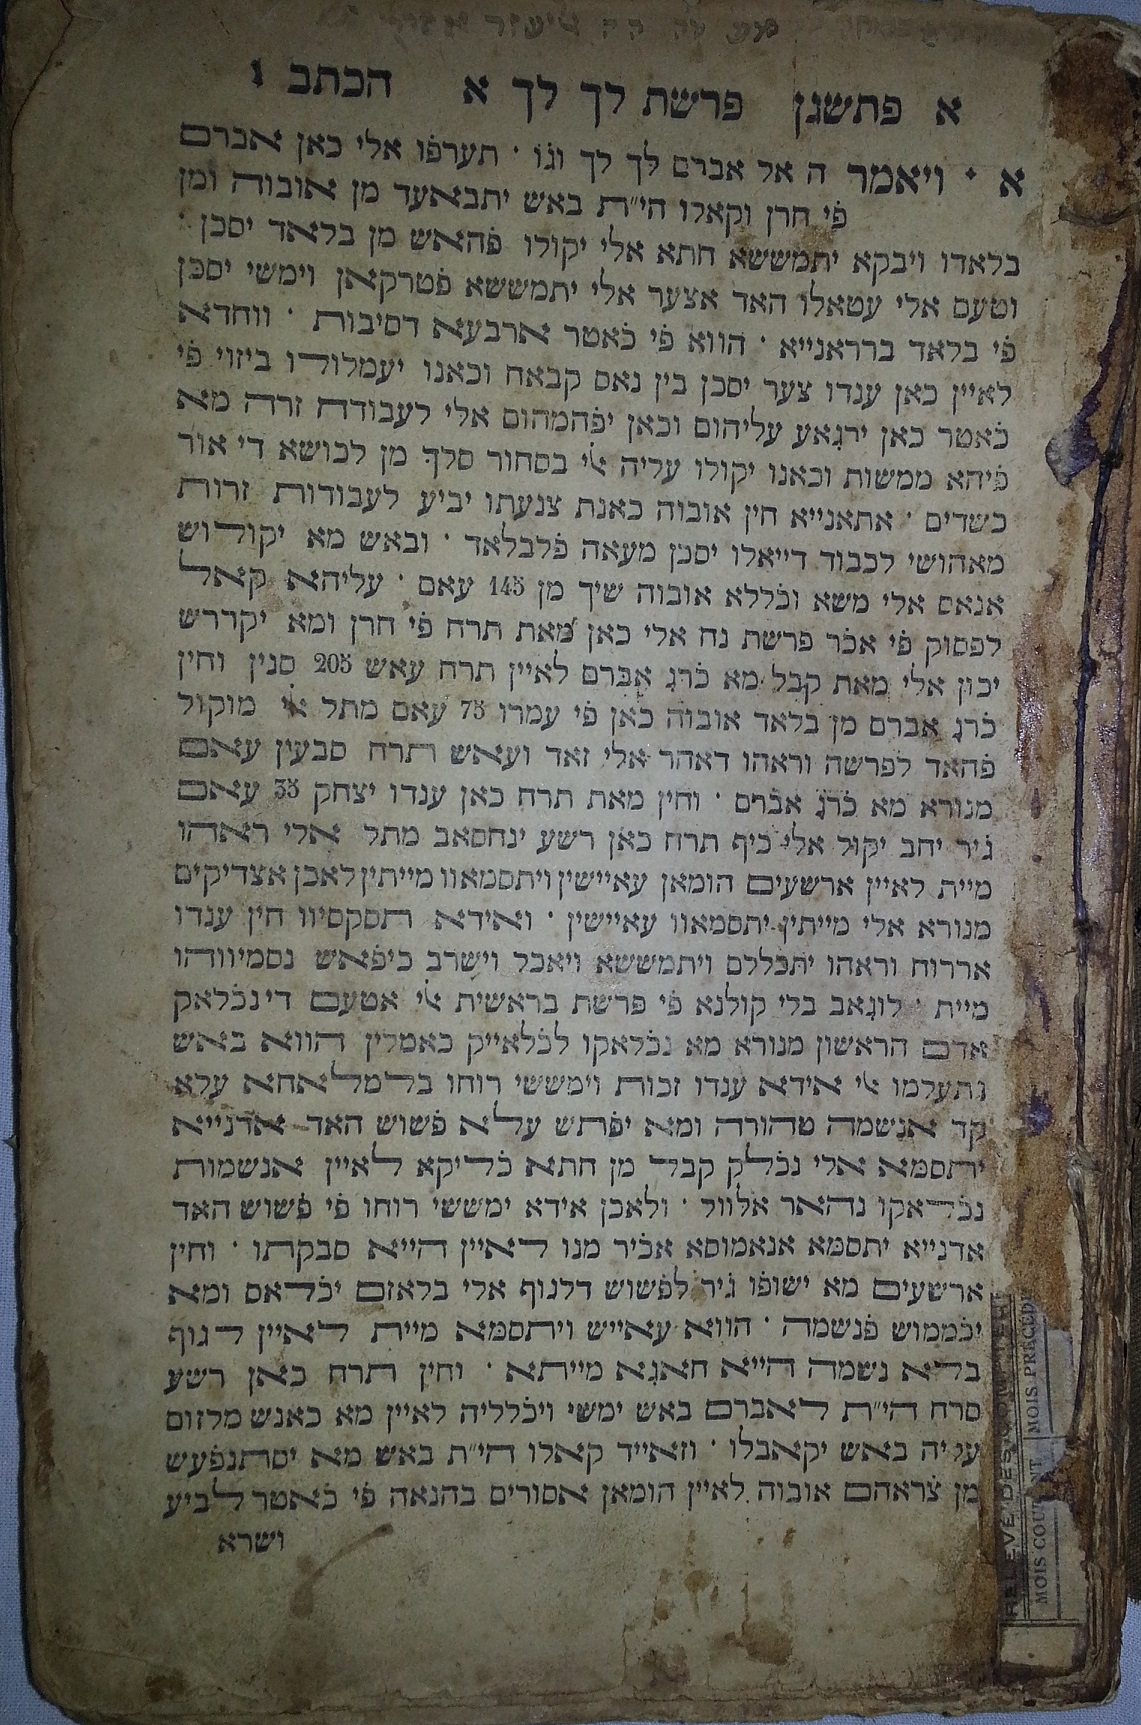 א פתשגן פרשת לך לך א הכתב
א ויאמר ה אל אברם לך לך וגו׳ · תערפ̇ו אלי כאן אברם
פ̇י חרן וקאלו הי״ת באש יתבאעד מן אובוה ומן
בלאדו ויבקא יתמששא חתא אלי יקולו פ̇האש מן בלאד יסכן ·
וטעם אלי עטאלו האד אצער אלי יתמששא פ̇טרקאן וימשי יסכן
פ̇י בלאד ברראנייא · הווא פ̇י כ̇אטר ארבעא דסיבות · ווחדא
לאיין כאן ענדו צער יסכן בין נאס קבאח וכאנו יעמלולו ביזוי פ̇י
כ̇אטר כאן ירגאע עליהום וכאן יפ̇המהום אלי לעבודה זרה מא
פ̇יהא ממשות וכאנו יקולו עליה אלי בסחור סלך מן לכושא די אור
כשדים · אתאנייא חין אובוה כאנת צנעתו יביע לעבודות זרות
מאהושי לכבוד דייאלו יסכן מעאה פ̇לבלאד · ובאש מא יקולוש
אנאס אלי משא וכ̇ללא אובוה שיך מן 145 עאם · עליהא קאל
לפסוק פ̇י אכ̇ר פרשת נח אלי כאן מאת תרח פ̇י חרן ומא יקדרש
יכון אלי מאת קבל מא כ̇רג אברם לאיין תרח עאש 205 סנין וחין
כ̇רג אברם מן בלאד אובוה כאן פ̇י עמרו 75 עאם מתל אלי מוקול
פ̇האד לפרשה וראהו דאהר אלי זאד ועאש תרח סבעין עאם
מנורא מא כ̇רג אברם · וחין מאת תרח כאן ענדו יצחק 35 עאם
ג̇יר יחב יקול אלי כיף תרח כאן רשע ינחסאב מתל אלי ראהו
מיית לאיין ארשעים הומאן עאיישין ויתסמאוו מייתין לאכן אצדיקים
מנורא אלי מייתין יתסמאוו עאיישין · ואידא תסקסיוו חין ענדו
אררוח וראהו יתכללם ויתמששא ויאכל וישרב כיפ̇אש נסמיווהו
מיית · לוגאב בלי קולנא פ̇י פרשת בראשית אלי אטעם די נכ̇לאק
אדם הראשון מנורא מא נכ̇לאקו לכ̇לאייק כאמלין הווא באש
נתעלמו אלי אידא ענדו זכות וימששי רוחו בלמלאחא עלא
קד אנשמה טהורה ומא יפ̇תש עלא פ̇שוש האד אדנייא
יתסמא אלי נכ̇לק קבל מן חתא כ̇ליקא לאיין אנשמות
נכ̇לאקו נהאר אלוול · ולאכן אידא ימששי רוחו פ̇י פ̇שוש האד
אדנייא יתסמא אנאמוסא אכ̇יר מנו לאיין הייא סבקתו · וחין
ארשעים מא ישופ̇ו ג̇יר לפ̇שוש דלגוף אלי בלאזם יכ̇לאס ומא
יכ̇ממוש פ̇נשמה · הווא עאייש ויתסמא מיית לאיין לגוף
בלא נשמה הייא חאגא מייתא · וחין תרח כאן רשע
סרח הי״ת לאברם באש ימשי ויכ̇לליה לאיין מא כאנש מלזום
עליה באש יקאבלו · וזאייד קאלו הי״ת באש מא יסתנפ̇עש
מן צ̇ראהם אובוה לאיין הומאן אסורים בהנאה פ̇י כ̇אטר לביע
ושרא
RELEVÉ DES COMPTE
MOIS COURANT MOIS PRÉCÉDE